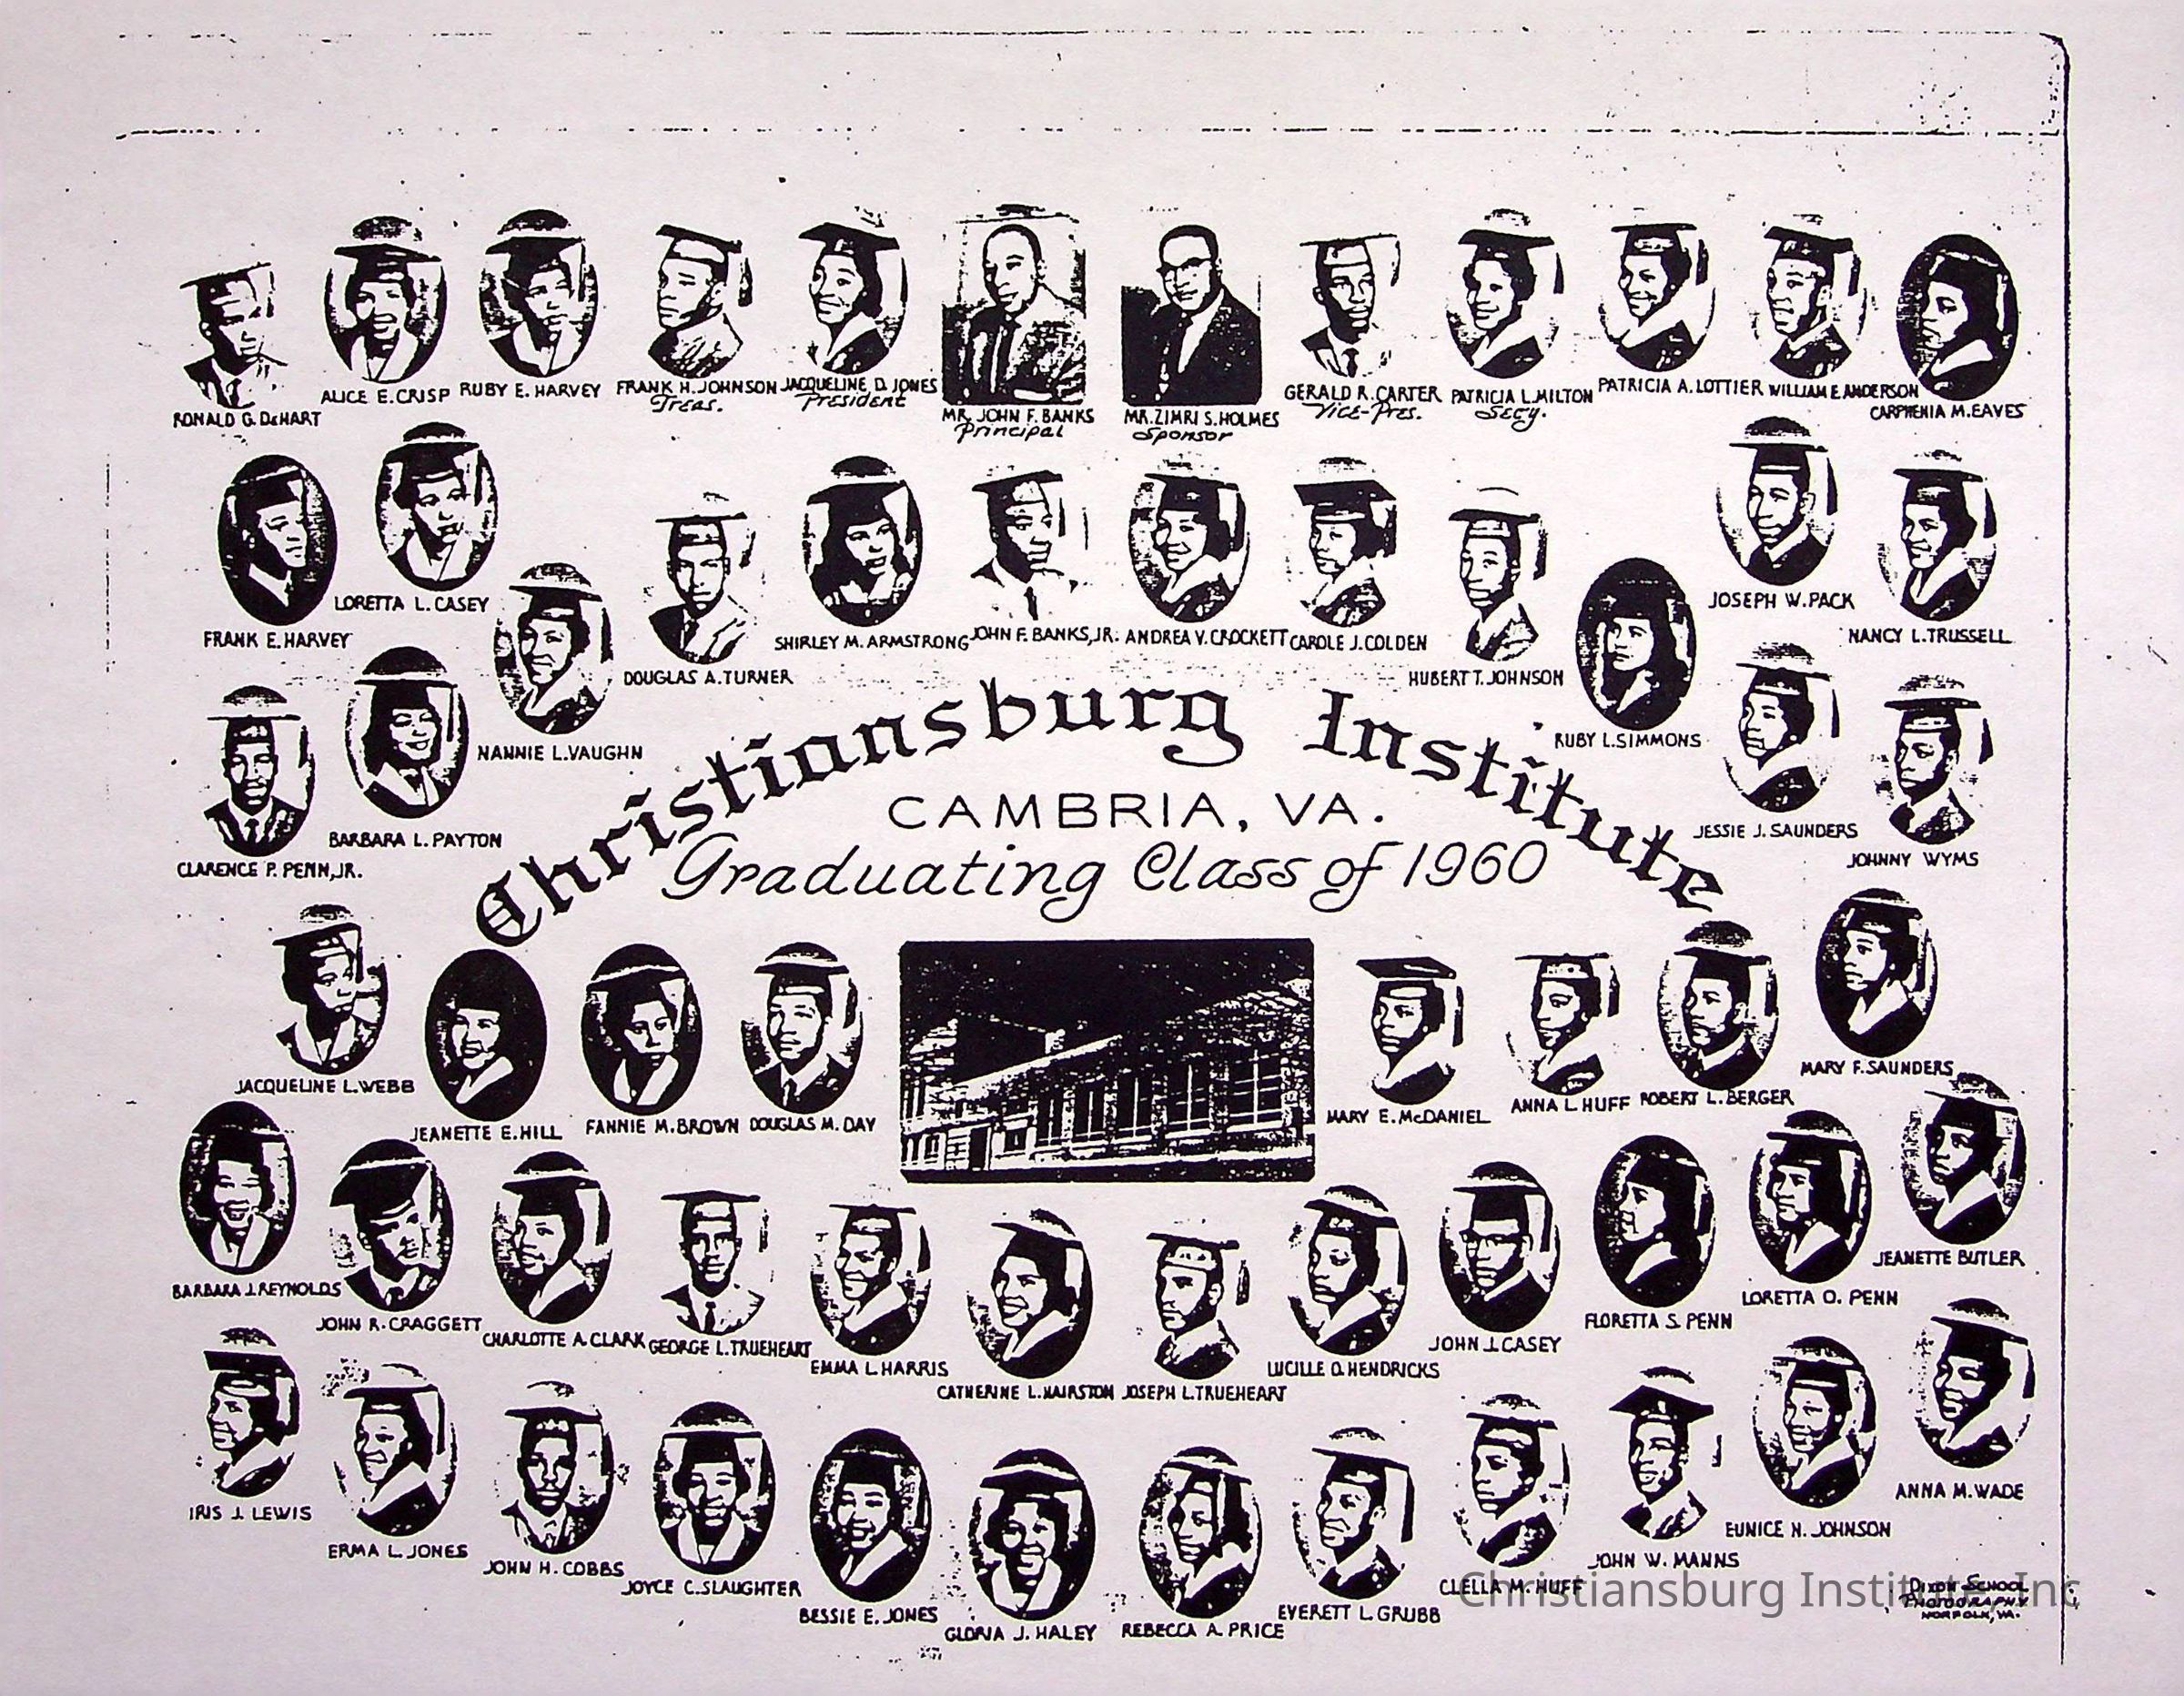 RONALD G. DeHART
ALICE E. CRISP
RUBY E. HARVEY
FRANK H. JOHNSON
Treas.
JACQUELINE D. JONES
President
MR. JOHN F. BANKS
Principal
MR. ZIMRI S. HOLMES
Sponsor
GERALD R. CARTER
Vice-Pres.
PATRICIA L. MILTON
Secy.
PATRICIA A. LOTTIER
WILLIAM E. ANDERSON
CARPHENIA M. EAVES
FRANK E. HARVEY
LORETTA L. CASEY
NANNIE L. VAUGHN
DOUGLAS A. TURNER
SHIRLEY M. ARMSTRONG
JOHN F. BANKS, JR.
ANDREA V. CROCKETT
CAROLE J. COLDEN
HUBERT T. JOHNSON
RUBY L. SIMMONS
JOSEPH W. PACK
NANCY L. TRUSSELL
CLARENCE P. PENN, JR.
BARBARA L. PAYTON
JESSIE J. SAUNDERS
JOHNNY WYMS
Christiansburg Institute
CAMBRIA, VA.
Graduating Class of 1960
JACQUELINE L. WEBB
JEANETTE E. HILL
FANNIE M. BROWN
DOUGLAS M. DAY
MARY E. McDANIEL
ANNA L. HUFF
ROBERT L. BERGER
MARY F. SAUNDERS
BARBARA J. REYNOLDS
JOHN R. CRAGGETT
CHARLOTTE A. CLARK
GEORGE L. TRUEHEART
EMMA L. HARRIS
CATHERINE L. HAIRSTON
JOSEPH L. TRUEHEART
LUCILLE O. HENDRICKS
JOHN J. CASEY
FLORETTA S. PENN
LORETTA O. PENN
JEANETTE BUTLER
IRIS J. LEWIS
ERMA L. JONES
JOHN H. COBBS
JOYCE C. SLAUGHTER
BESSIE E. JONES
GLORIA J. HALEY
REBECCA A. PRICE
EVERETT L. GRUBB
CLELLA M. HUFF
JOHN W. MANNS
EUNICE N. JOHNSON
ANNA M. WADE
Christiansburg Institute, Inc
DIXON SCHOOL
PHOTOGRAPHY
NORFOLK, VA.